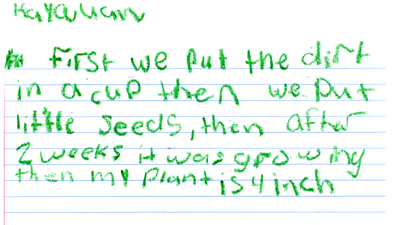 First we put the dirt
in a cup then we put
little seeds, then after
2 weeks it was growing
then my plant is 4 inch